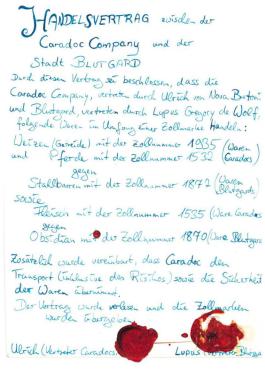 HANDELSVERTRAG zwischen der
Caradoc Company und der
Stadt BLUTGARD
Durch diesen Vertrag sei beschlossen, dass die
Caradoc Company, vertreten durch Ulrich von Nova Bretoni
und Blutgard, vertreten durch Lupus Gregory de Wolf,
folgende Waren im Umfang einer Zollmarke handeln:
Weizen (Getreide) mit der Zollnummer 1935 (Waren
und Pferde mit der Zollnummer 1532 Caradocs)
gegen
Stahlbarren mit der Zollnummer 1872 (Waren
Blutgards)
sowie
Fleisch mit der Zollnummer 1535 (Ware Caradocs
gegen
Obsidian mit der Zollnummer 1870 (Ware Blutgards
Zusätzlich wurde vereinbart, dass Caradoc den
Transport (inklusive des Risikos) sowie die Sicherheit
der Waren übernimmt.
Der Vertrag wurde verlesen und die Zollmarken
wurden übergeben.
Ulrich (Vertreter Caradocs) Lupus (Vertreter